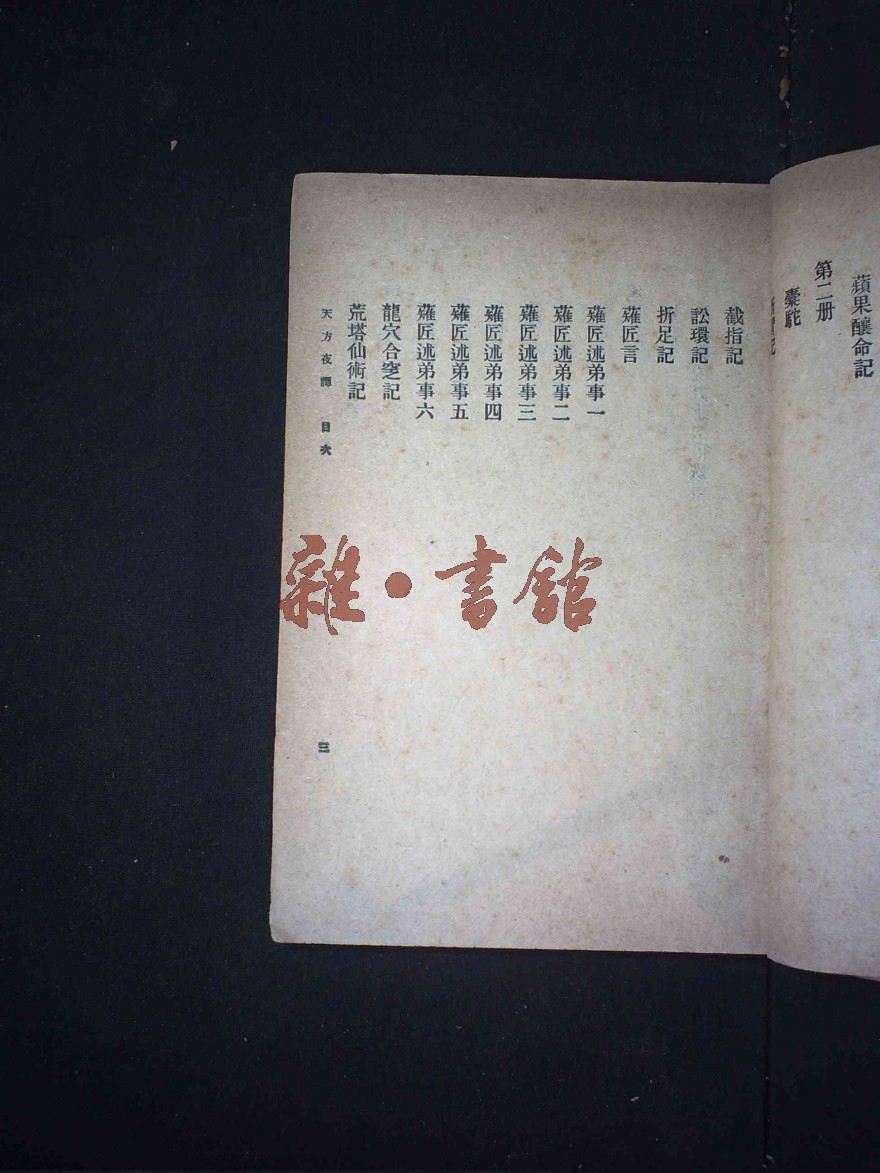 蘋果釀命記
第二册
橐駝
截指記
訟環記
折足記
薙匠言
薙匠述弟事一
薙匠述弟事二
薙匠述弟事三
薙匠述弟事四
薙匠述弟事五
薙匠述弟事六
龍穴合窆記
荒塔仙術記
天方夜譚 目次
三
雜·書館